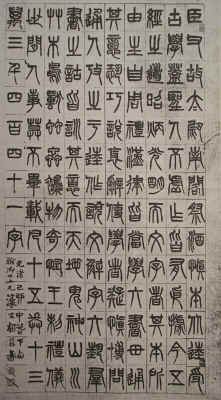 臣父故太尉南閣祭酒慎本從逵受
古學蓋聖人不空作皆有依據今五
經之道昭炳光明而文字者其本所
由生自周禮漢律皆當學六書貫通
其意恐巧說衺辭使學者疑慎博問
通人考之於逵作說文解字六藝群
書之詁皆訓其意而天地鬼神山川
艸木鳥獸䖵蟲雜物奇怪王制禮儀
世間人事莫不畢載凡十五卷十三
萬三千四百四十一字
光緒己卯